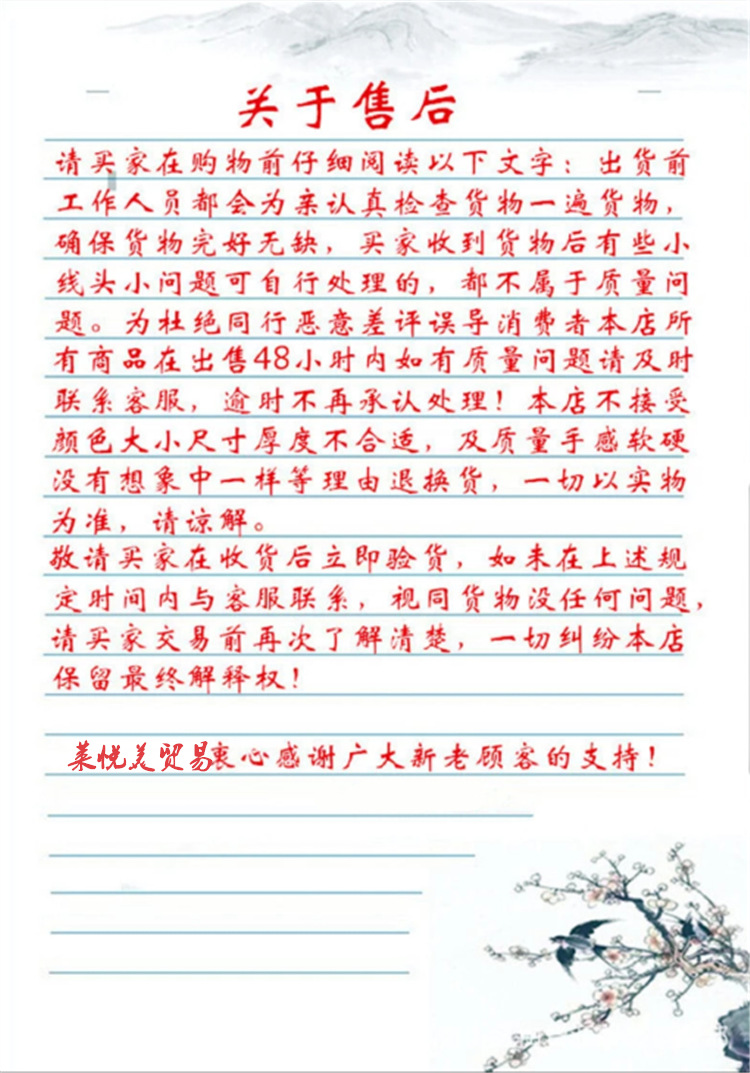 关于售后
请买家在购物前仔细阅读以下文字：出货前
工作人员都会为亲认真检查货物一遍货物，
确保货物完好无缺，买家收到货物后有些小
线头小问题可自行处理的，都不属于质量问
题。为杜绝同行恶意差评误导消费者本店所
有商品在出售48小时内如有质量问题请及时
联系客服，逾时不再承认处理！本店不接受
颜色大小尺寸厚度不合适，及质量手感软硬
没有想象中一样等理由退换货，一切以实物
为准，请谅解。
敬请买家在收货后立即验货，如未在上述规
定时间内与客服联系，视同货物没任何问题，
请买家交易前再次了解清楚，一切纠纷本店
保留最终解释权！
莱悦美贸易衷心感谢广大新老顾客的支持！